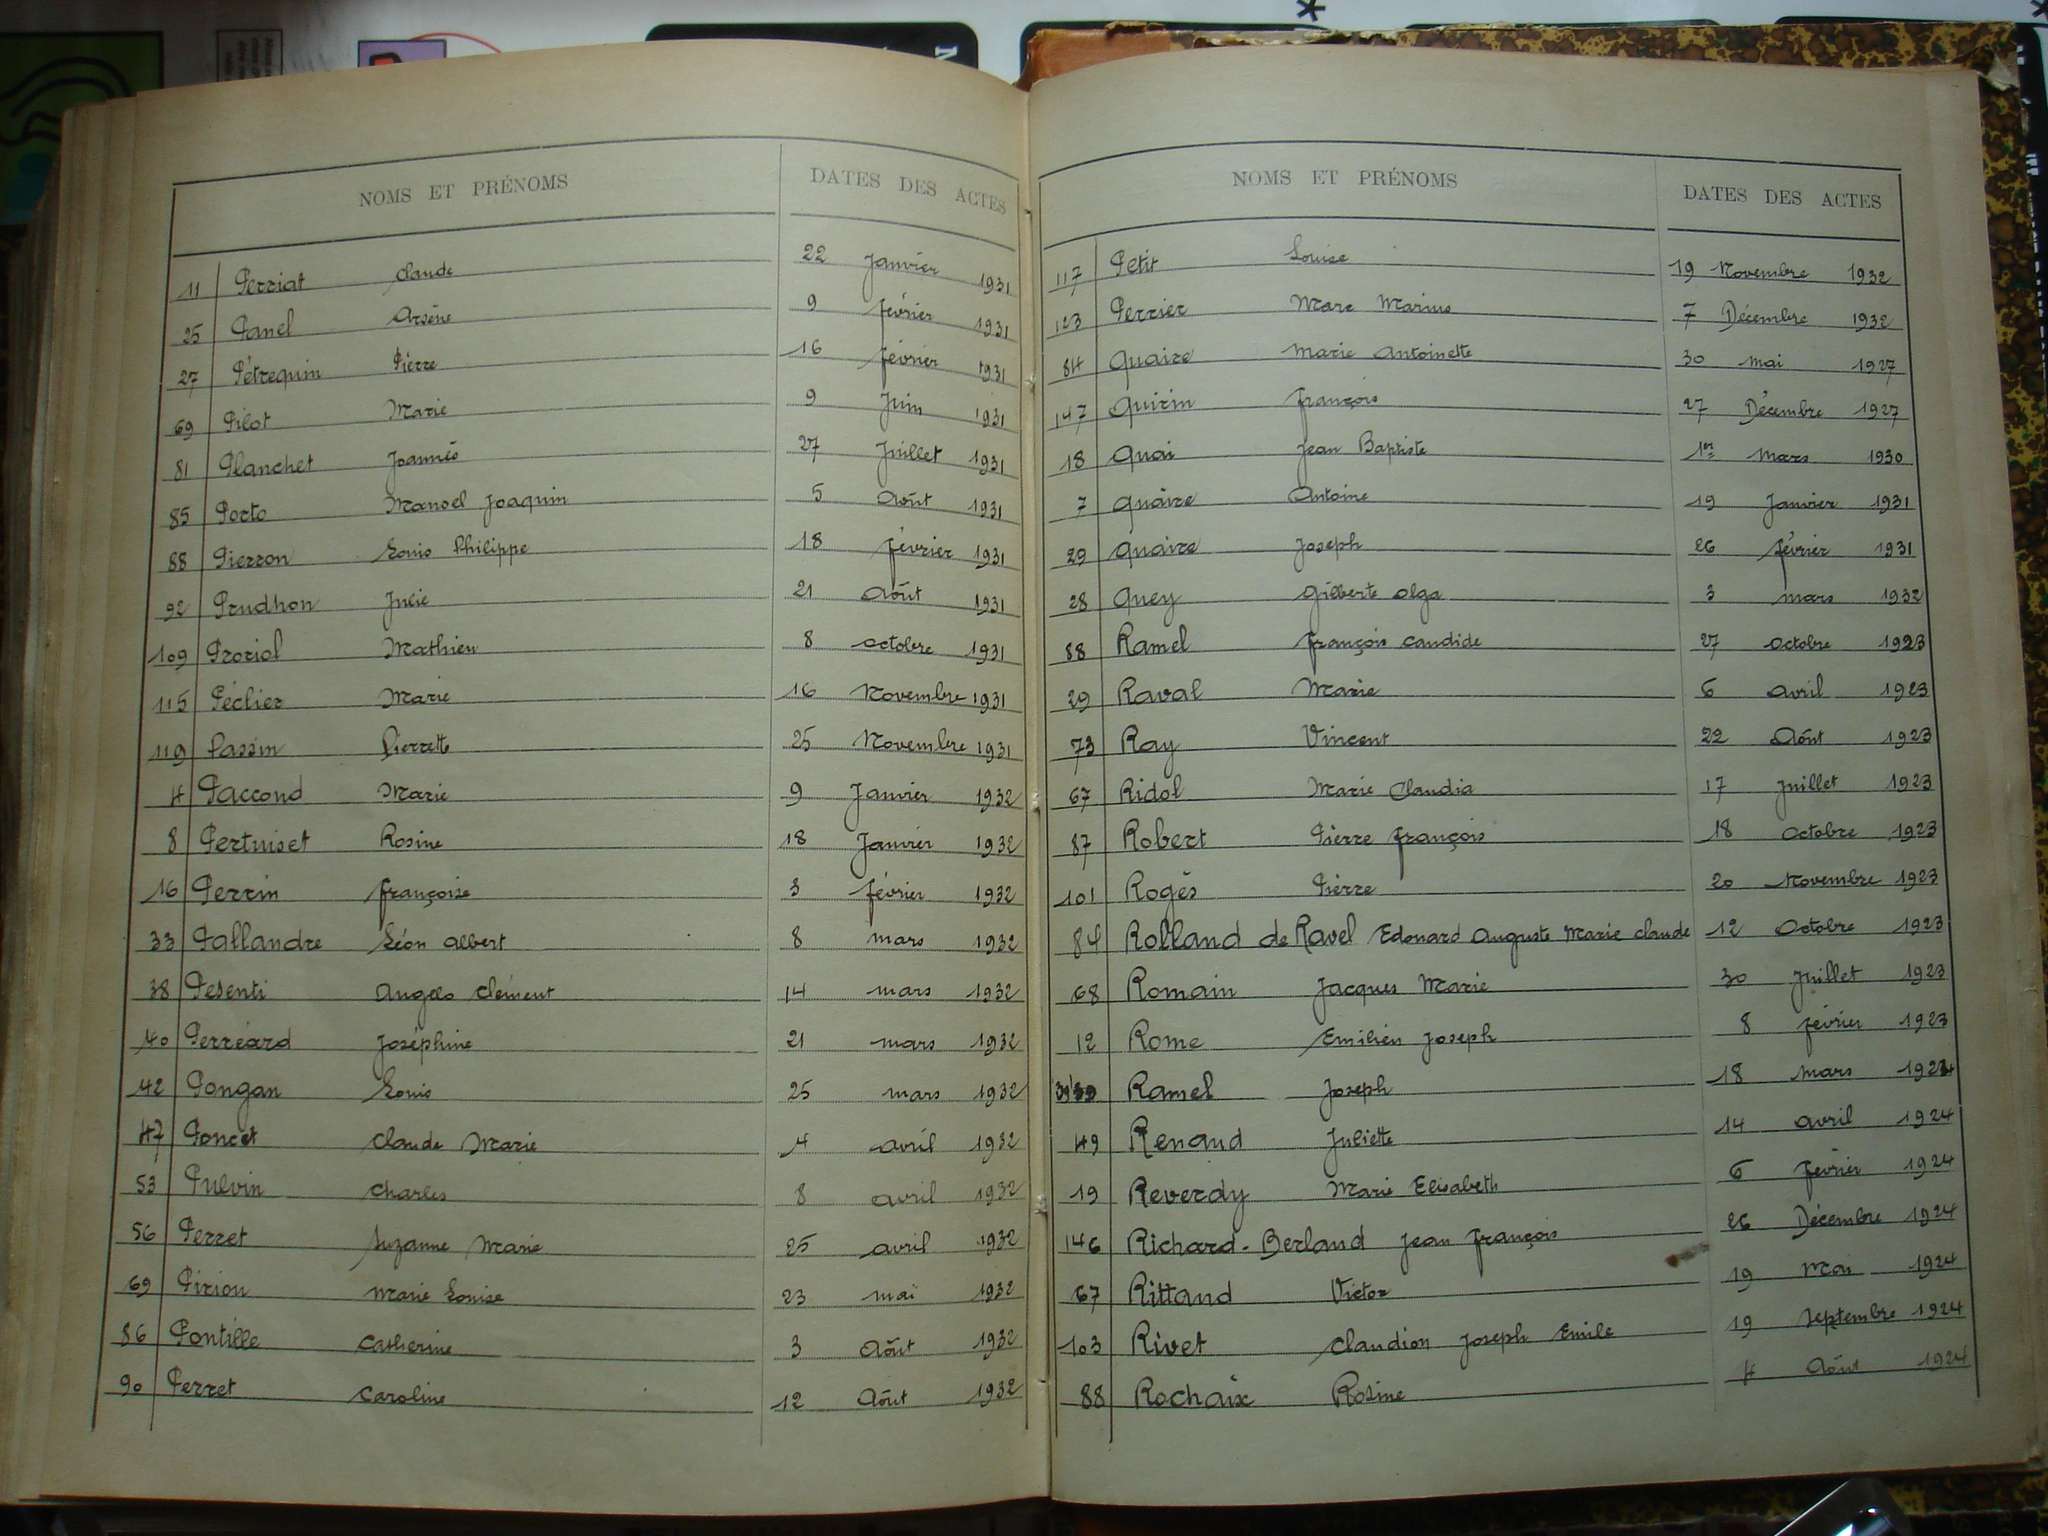 NOMS ET PRÉNOMS DATES DES ACTES
11 Perriat Claude 22 Janvier 1931
25 Panel Arsène 9 février 1931
27 Pétrequin Pierre 16 février 1931
69 Pilot Marie 9 Juin 1931
81 Planchet Joannès 27 Juillet 1931
85 Porto Manoel Joaquin 5 Août 1931
88 Pierron Louis Philippe 18 février 1931
92 Prudhon Julie 21 Août 1931
109 Proriol Mathieu 8 octobre 1931
115 Péclier Marie 16 Novembre 1931
119 Passin Pierrette 25 Novembre 1931
4 Paccoud Marie 9 Janvier 1932
8 Pertuiset Rosine 18 Janvier 1932
16 Perrin françoise 3 février 1932
33 Pallandre Léon Albert 8 mars 1932
38 Pesenti Angelo Clément 14 mars 1932
40 Perréard Joséphine 21 mars 1932
42 Pongan Louis 25 mars 1932
47 Poncet Claude Marie 4 avril 1932
53 Pulvin Charles 8 avril 1932
56 Perret Suzanne Marie 25 avril 1932
69 Pirion Marie Louise 23 mai 1932
86 Pontille Catherine 3 Août 1932
90 Perret Caroline 12 Août 1932
NOMS ET PRÉNOMS DATES DES ACTES
117 Petit Louise 19 Novembre 1932
123 Perrier Marc Marius 7 Décembre 1932
84 Quaire Marie Antoinette 30 mai 1927
147 Quirin françois 27 Décembre 1927
18 Quai Jean Baptiste 1er mars 1930
7 Quaire Antoine 19 Janvier 1931
29 Quaire Joseph 26 février 1931
28 Quey Gilberte Olga 3 mars 1932
88 Ramel françois Candide 27 Octobre 1923
29 Raval Marie 6 avril 1923
73 Ray Vincent 22 Août 1923
67 Ridol Marie Claudia 17 Juillet 1923
87 Robert Pierre françois 18 octobre 1923
101 Rogès Pierre 20 Novembre 1923
84 Rolland de Ravel Edouard Auguste Marie Claude 12 Octobre 1923
68 Romain Jacques Marie 30 Juillet 1923
12 Rome Emilien Joseph 8 février 1923
39 Ramel Joseph 18 mars 1924
49 Renaud Juliette 14 avril 1924
19 Reverdy Marie Elisabeth 6 février 1924
146 Richard-Berland Jean François 26 Décembre 1924
67 Rittaud Victor 19 Mai 1924
103 Rivet Claudion Joseph Emile 19 Septembre 1924
88 Rochaix Rosine 4 Août 1924